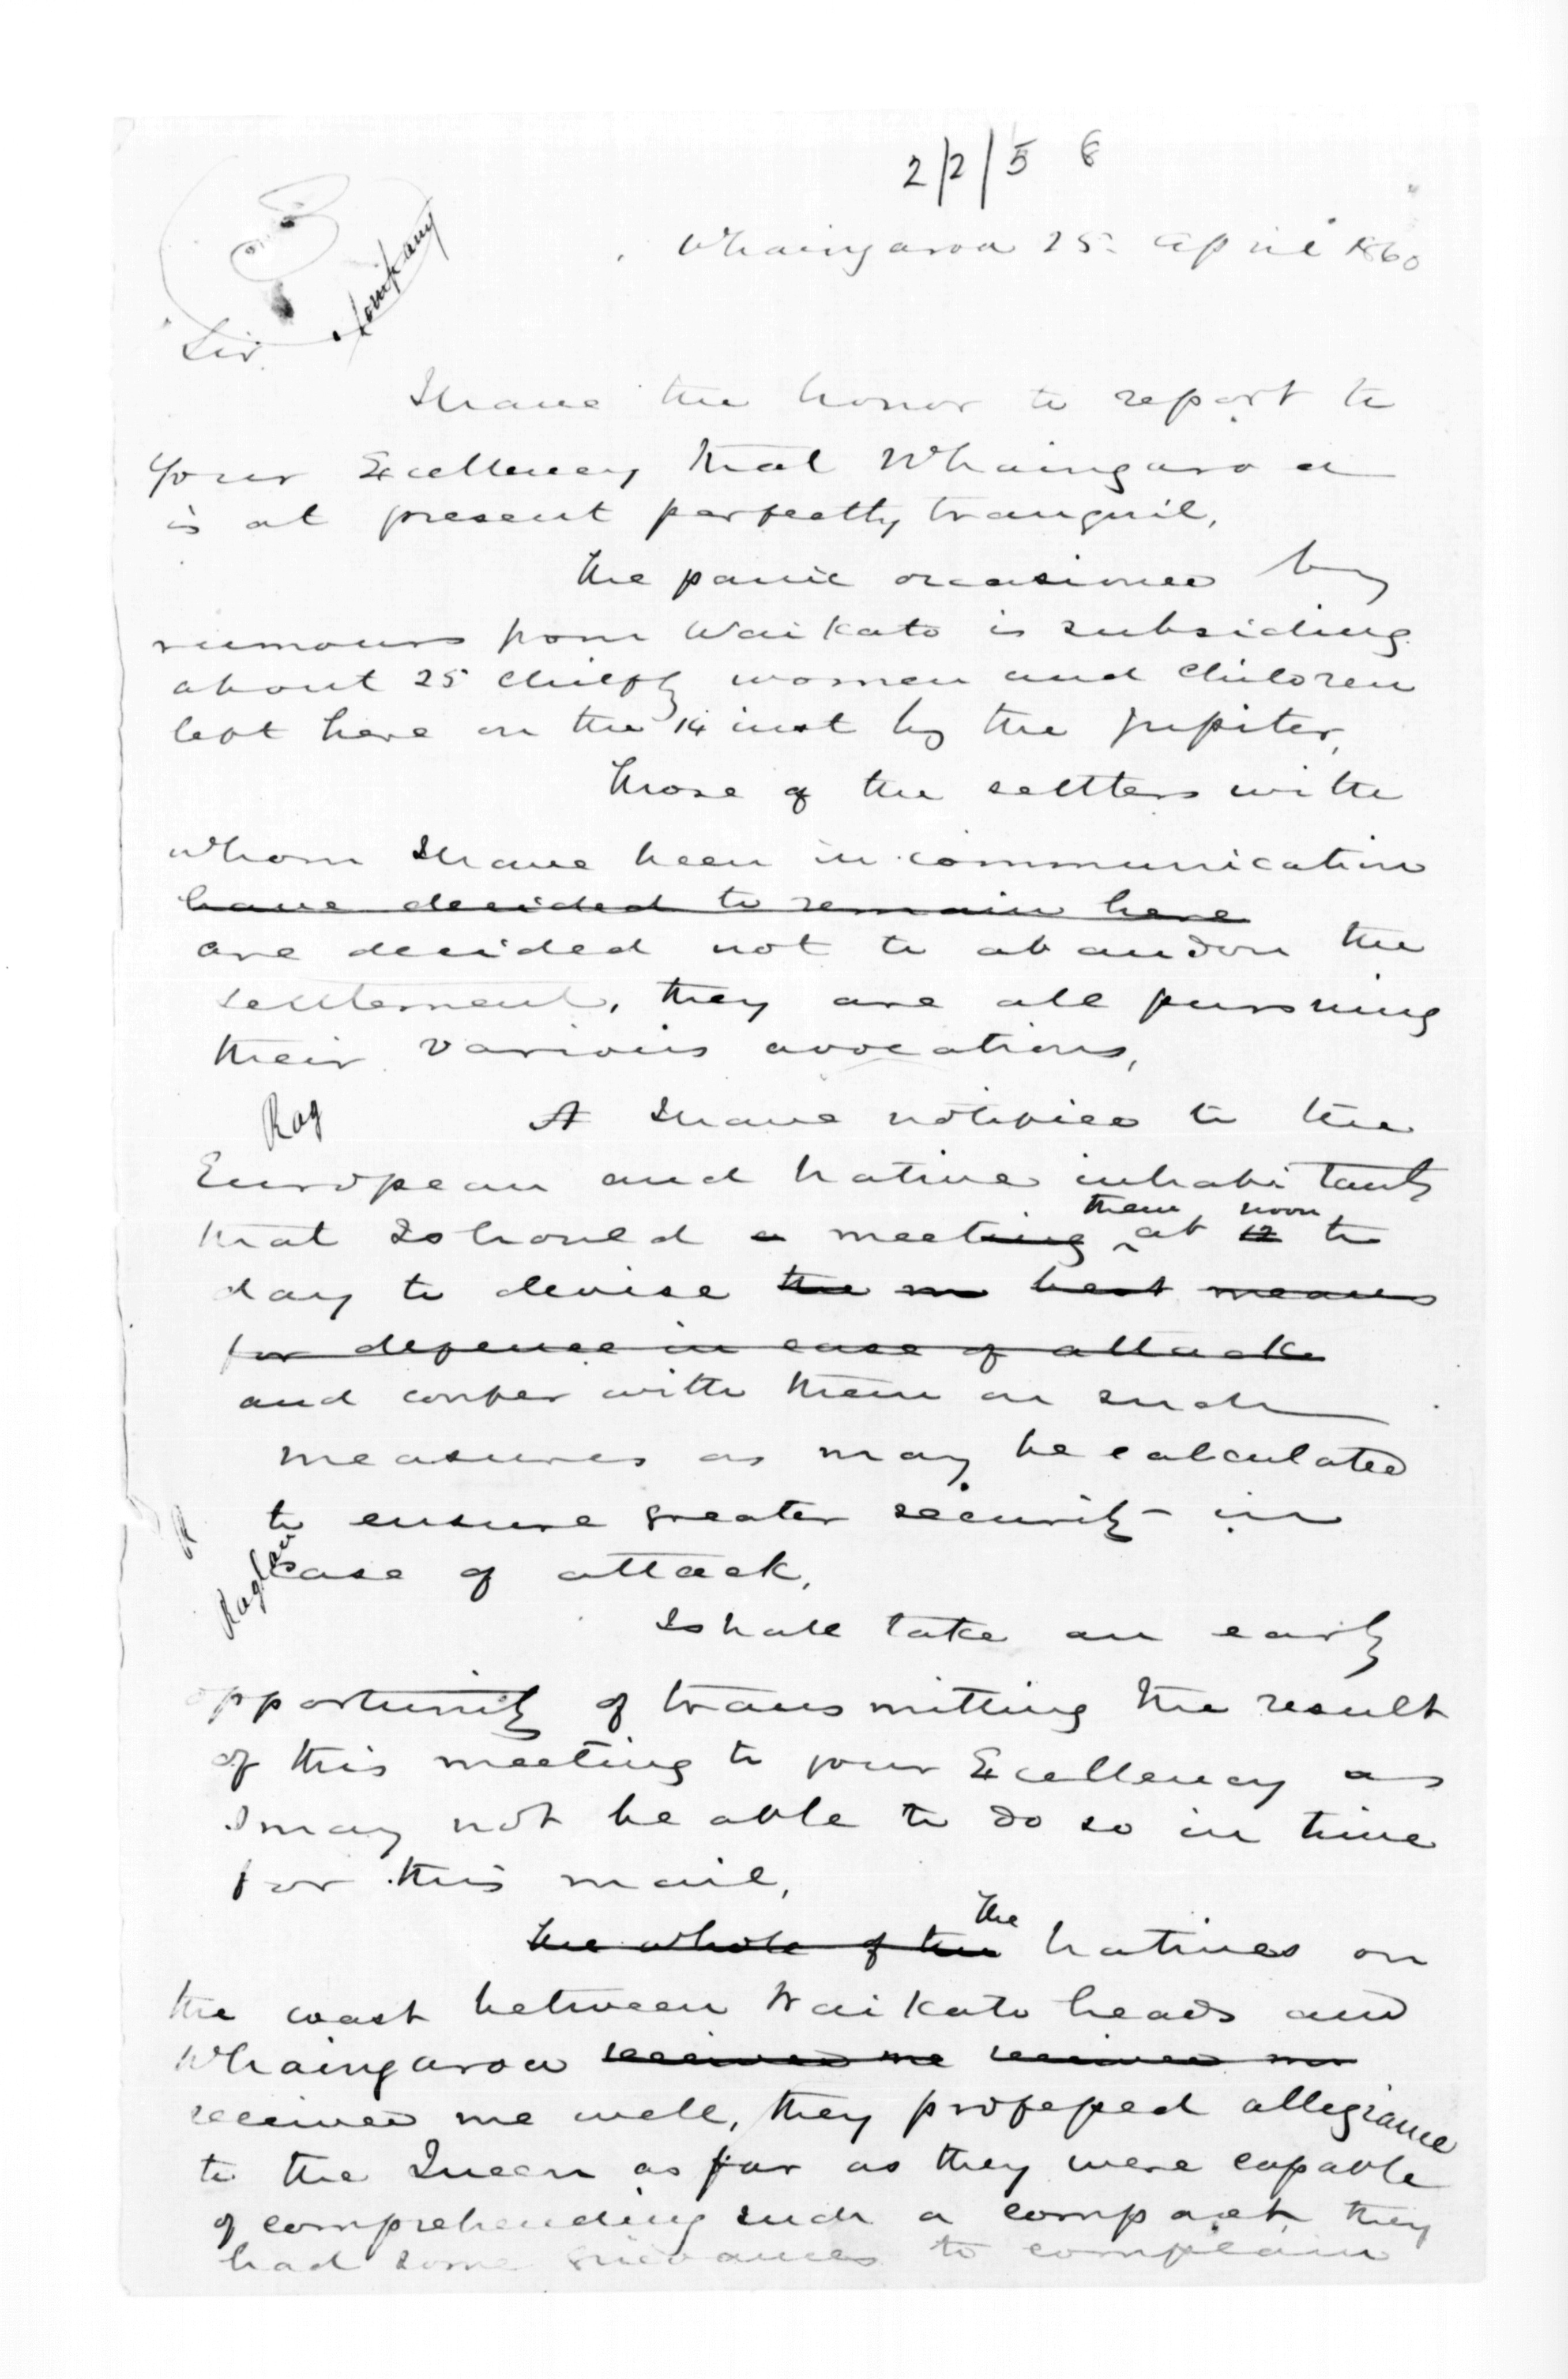 2/2/5 6
Whaingaroa 25. April 1860
Company
Sir.
I have the honor to report to
your Excellency that Whaingaroa
is at present perfectly tranquil,
The panic occasioned by
rumours from Waikato is subsiding
about 25 chiefly women and children
left here on the 14 inst by the Jupiter,
Those of the settlers with
whom I have been in communication
have decided to remain here
are decided not to abandon the
settlement, they are all pursuing
their various avocations,
Rag
A I have notified to the
European and Native inhabitants
them noon
that I should a meeting at 12 to
day to devise the m best means
for defence in case of attack
and confer with them on such
measures as may be calculated
to ensure greater security in
Raglan
case of attack,
I shall take an early
opportunity of transmitting the result
of this meeting to your Excellency as
I may not be able to do so in time
for this mail,
the
the whole of the Natives on
the coast between Waikato heads and
Whaingaroa received me received me
received me well, they professed allegiance
to the Queen as far as they were capable
of comprehending such a compact, they
had some grievances to complain